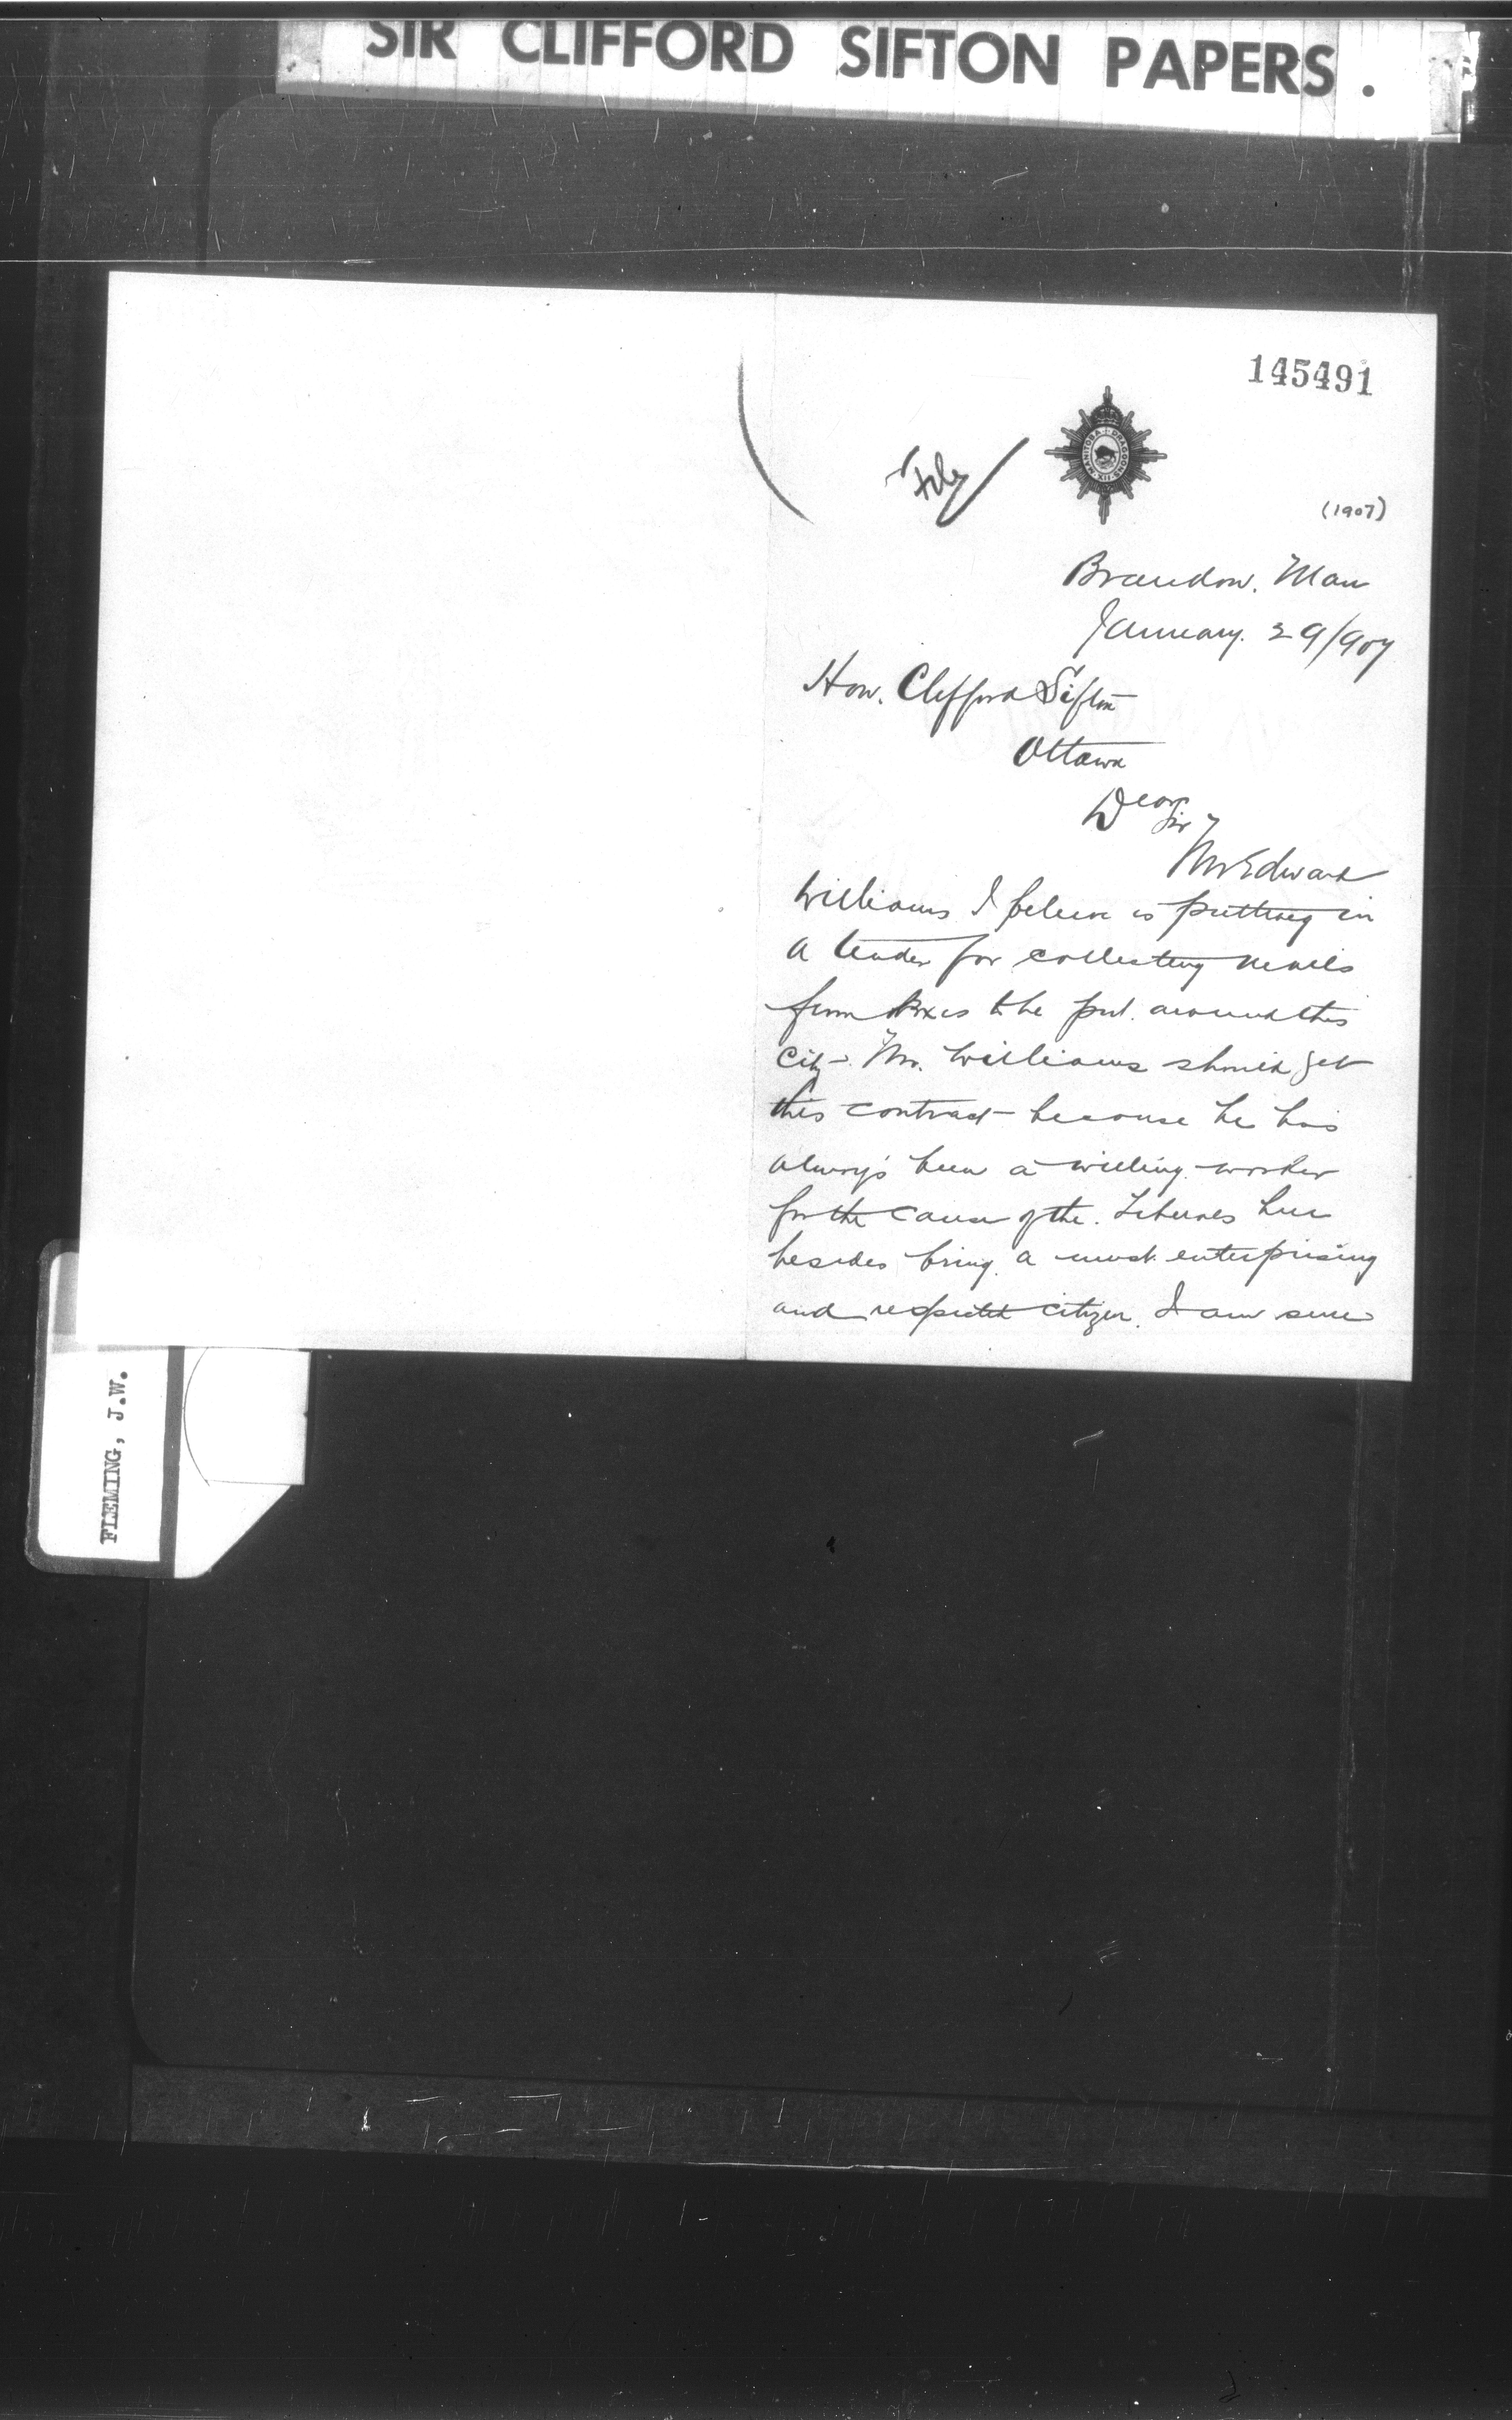 SIR CLIFFORD SIFTON PAPERS.
145491
File
MANITOBA DRAGOONS XII
(1907)
Brandon. Man
January. 29/907
Hon. Clifford Sifton
Ottawa
Dear Sir
Mr Edward
Williams I believe is putting in
a tender for collecting mails
from boxes to be put. around this
City. Mr. Williams should get
this contract because he has
always been a willing worker
for the cause of the. Liberals here
besides being a most enterprising
and respected citizen. I am sure
FLEMING, J.W.